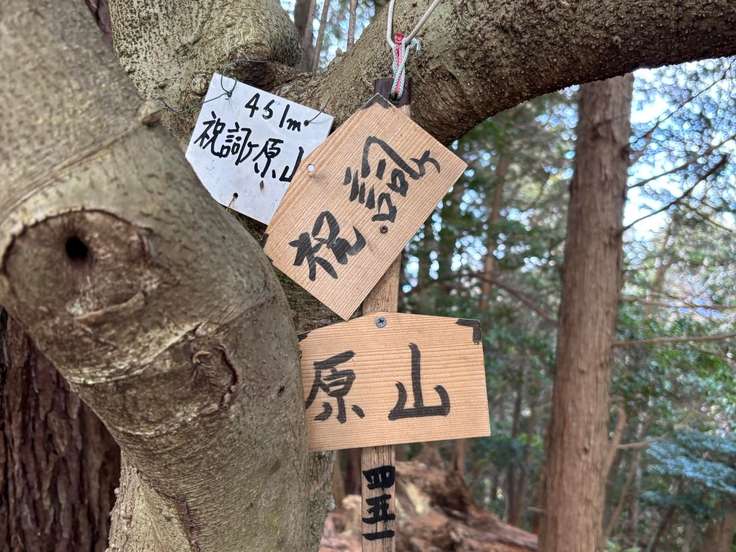 451m
祝詞ヶ原山
祝詞ヶ
原山
四五一